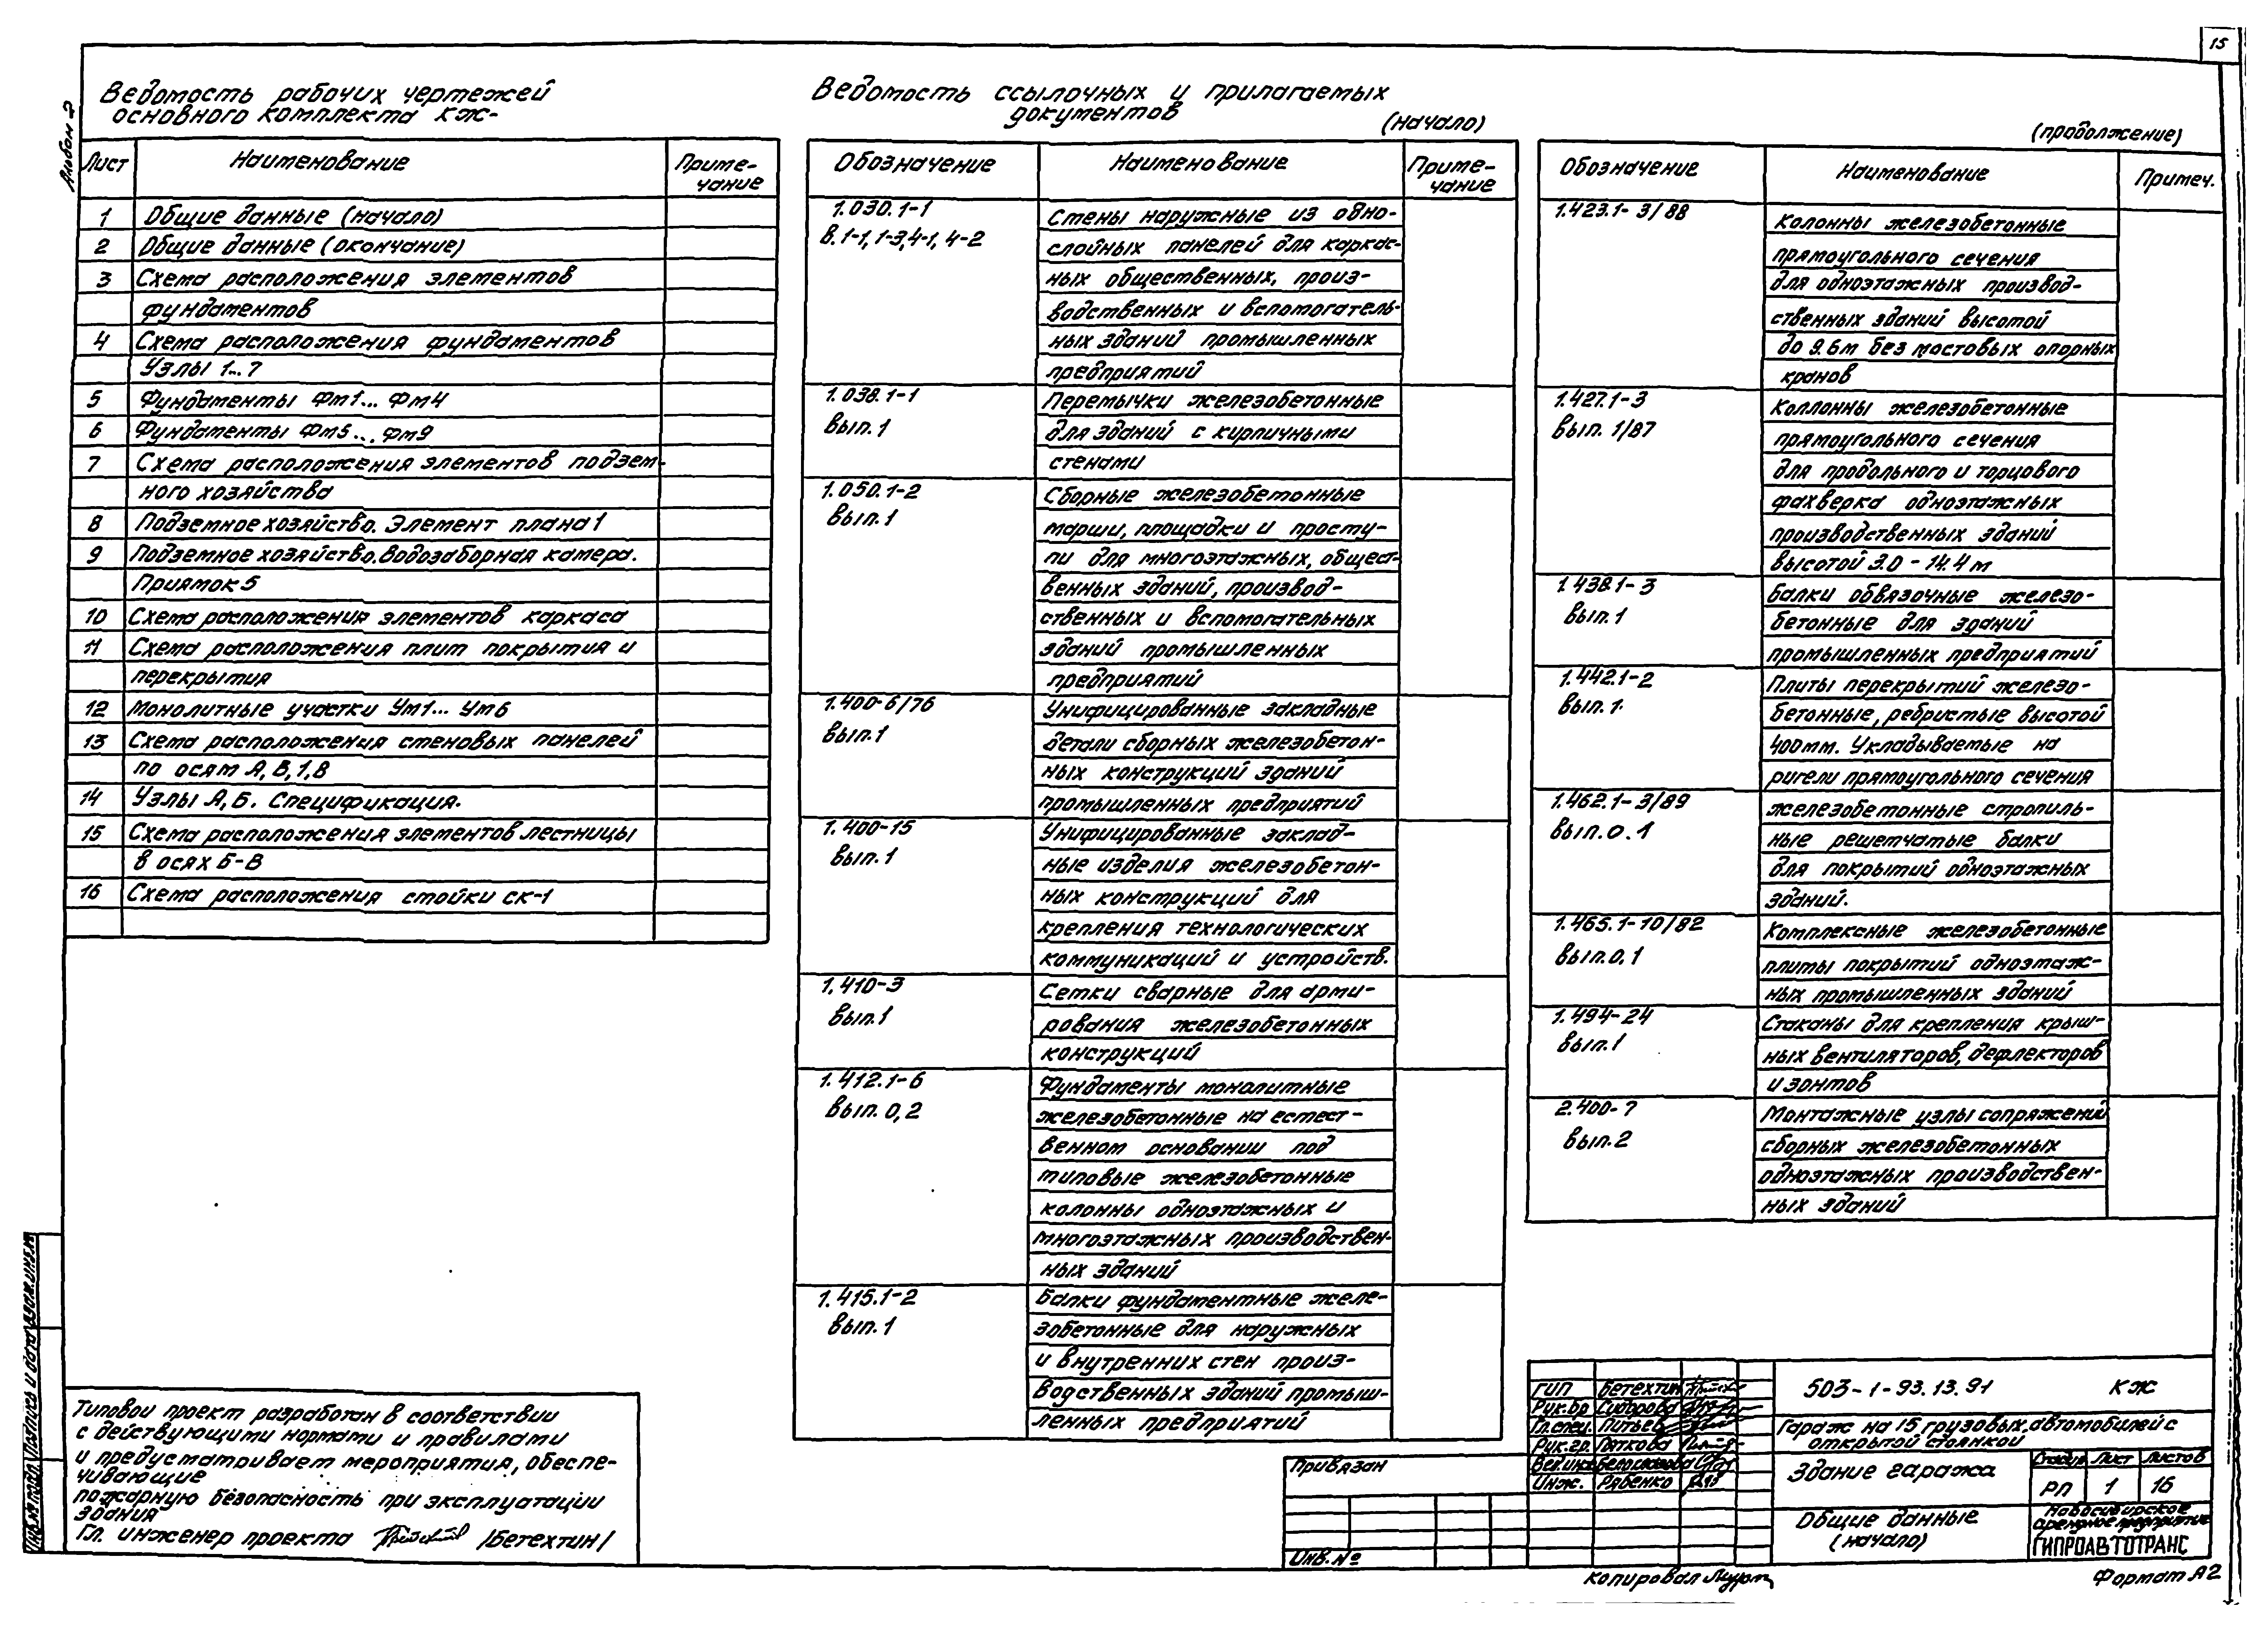 15
Альбом 2
Ведомость рабочих чертежей
основного комплекта КЖ-
Лист Наименование Приме-
чание
1 Общие данные (начало)
2 Общие данные (окончание)
3 Схема расположения элементов
фундаментов
4 Схема расположения фундаментов
Узлы 1...7
5 Фундаменты Фм1... Фм4
6 Фундаменты Фм5... Фм9
7 Схема расположения элементов подзем-
ного хозяйства
8 Подземное хозяйство. Элемент плана 1
9 Подземное хозяйство. Водозаборная камера.
Приямок 5
10 Схема расположения элементов каркаса
11 Схема расположения плит покрытия и
перекрытия
12 Монолитные участки Ум1... Ум6
13 Схема расположения стеновых панелей
по осям А, В, 1, 8
14 Узлы А, Б. Спецификация.
15 Схема расположения элементов лестницы
в осях Б-В
16 Схема расположения стойки СК-1
Ведомость ссылочных и прилагаемых
документов
(начало)
Обозначение Наименование Приме-
чание
1.030.1-1 Стены наружные из одно-
в. 1-1, 1-3, 4-1, 4-2 слойных панелей для каркас-
ных общественных, произ-
водственных и вспомогатель-
ных зданий промышленных
предприятий
1.038.1-1 Перемычки железобетонные
вып. 1 для зданий с кирпичными
стенами
1.050.1-2 Сборные железобетонные
вып. 1 марши, площадки и просту-
пи для многоэтажных, общест-
венных зданий, производ-
ственных и вспомогательных
зданий промышленных
предприятий
1.400-6/76 Унифицированные закладные
вып. 1 детали сборных железобетон-
ных конструкций зданий
промышленных предприятий
1.400-15 Унифицированные заклад-
вып. 1 ные изделия железобетон-
ных конструкций для
крепления технологических
коммуникаций и устройств.
1.410-3 Сетки сварные для арми-
вып. 1 рования железобетонных
конструкций
1.412.1-6 Фундаменты монолитные
вып. 0, 2 железобетонные на естест-
венном основании под
типовые железобетонные
колонны одноэтажных и
многоэтажных производствен-
ных зданий
1.415.1-2 Балки фундаментные желе-
вып. 1 зобетонные для наружных
и внутренних стен произ-
водственных зданий промыш-
ленных предприятий
(продолжение)
Обозначение Наименование Примеч.
1.423.1-3/88 Колонны железобетонные
прямоугольного сечения
для одноэтажных производ-
ственных зданий высотой
до 9.6м без мостовых опорных
кранов
1.427.1-3 Коллонны железобетонные
вып. 1/87 прямоугольного сечения
для продольного и торцового
фахверка одноэтажных
производственных зданий
высотой 3.0 - 14.4 м
1.438.1-3 Балки обвязочные железо-
вып. 1 бетонные для зданий
промышленных предприятий
1.442.1-2 Плиты перекрытий железо-
вып. 1. бетонные, ребристые высотой
400мм. Укладываемые на
ригели прямоугольного сечения
1.462.1-3/89 железобетонные стропиль-
вып. 0.1 ные решетчатые балки
для покрытий одноэтажных
зданий.
1.465.1-10/82 Комплексные железобетонные
вып. 0, 1 плиты покрытий одноэтаж-
ных промышленных зданий
1.494-24 Стаканы для крепления крыш-
вып. 1 ных вентиляторов, дефлекторов
и зонтов
2.400-7 Монтажные узлы сопряжений
вып. 2 сборных железобетонных
одноэтажных производствен-
ных зданий
Типовой проект разработан в соответствии
с действующими нормами и правилами
и предусматривает мероприятия, обеспе-
чивающие
пожарную безопасность при эксплуатации
здания
Гл. инженер проекта /Бетехтин/
Инв.№ подл. Подпись и дата Взам.инв.№
Привязан
Инв. №
ГИП Бетехтин
Рук.бр Сидорова
Гл.спец. Питьев
Рук.гр. Пяткова
Вед.инж
Инж. Рябенко
503-1-93.13.91 КЖ
Гараж на 15 грузовых автомобилей с
открытой стоянкой
Здание гаража
Стадия Лист Листов
РП 1 16
Общие данные
(начало)
Новосибирское
арендное предприятие
ГИПРОАВТОТРАНС
Копировал
Формат А2